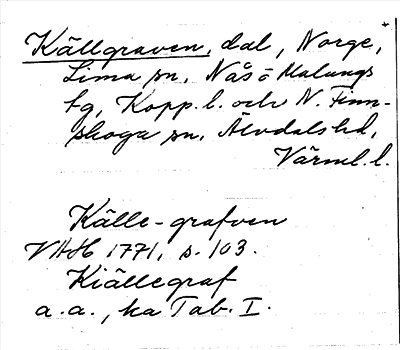 Källgraven, dal, Norge,
Lima sn, Nås o Malungs
tg, Kopp. l. och N. Finn-
skoga sn, Älvdals hd,
Värml. l.
Källe-grafven
VAH 1771, s. 103.
Kiällegraf
a. a., ka Tab. I.